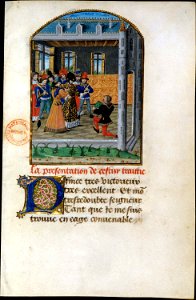 La presentation de cestui traittie
Prince tres victorieux
tres excellent Et mõ
tresredoubte seigneur
Tant que Je me suis
trouve en eage convenable